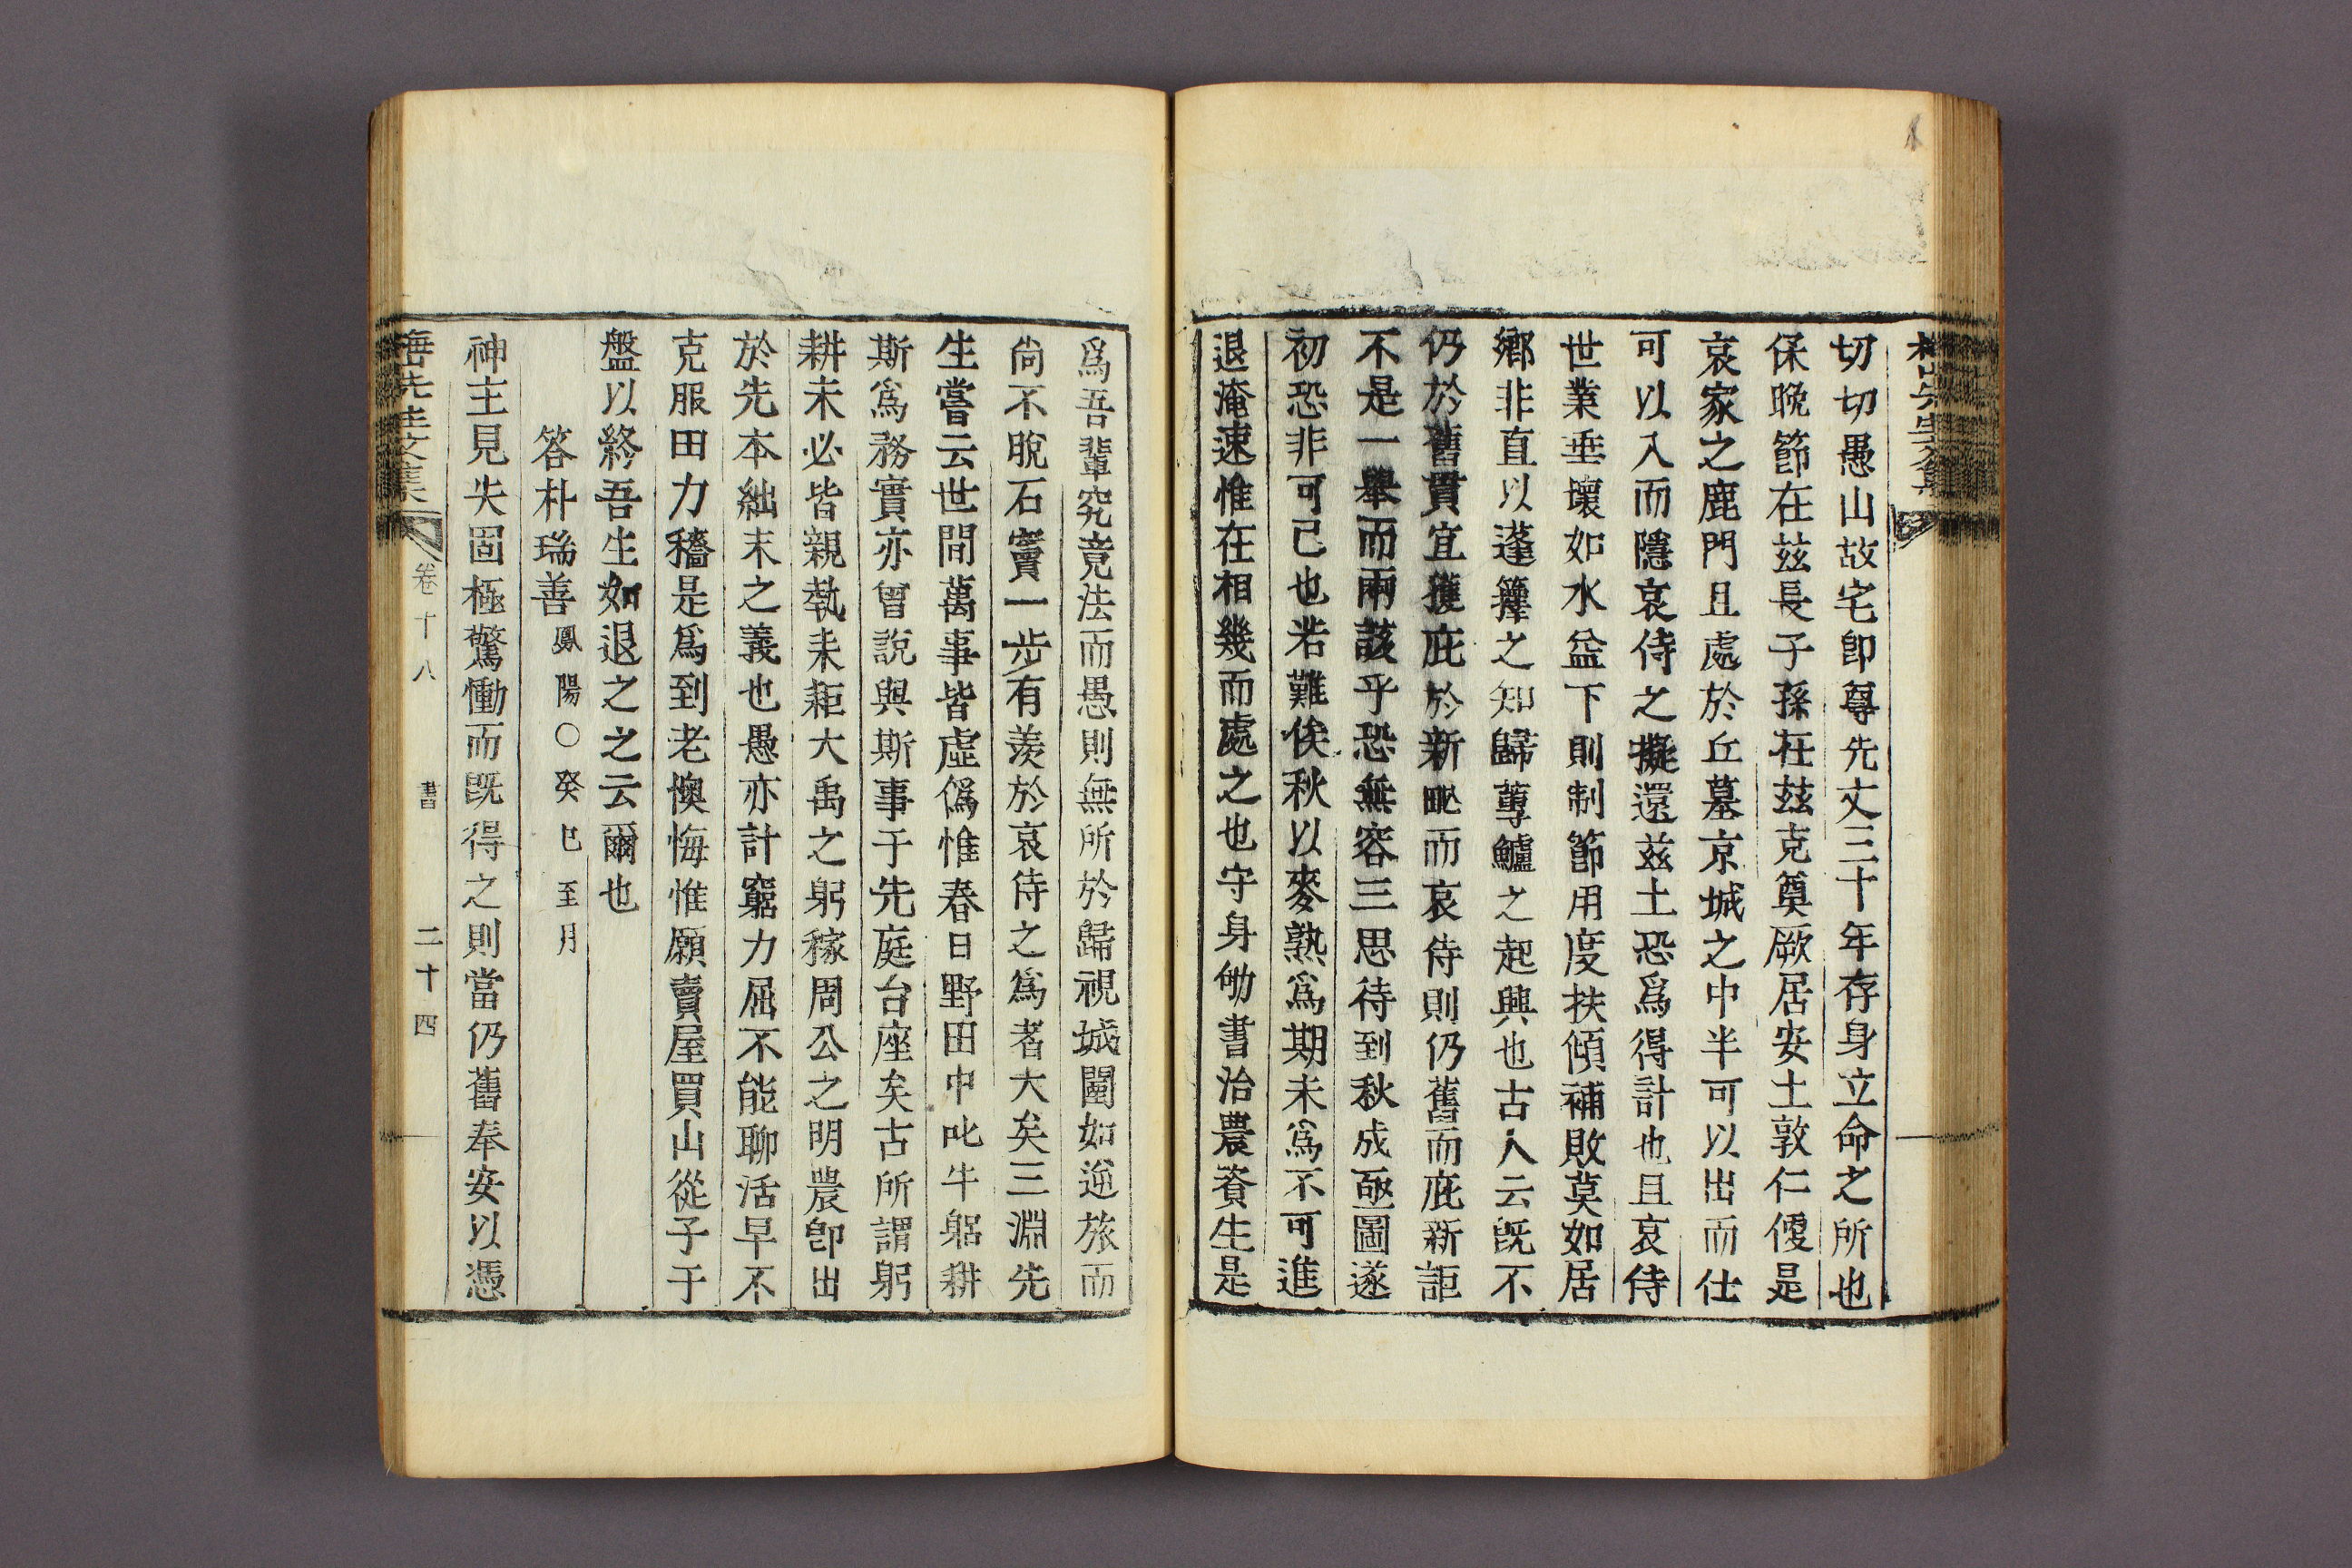 切切愚山故宅卽尊先丈三十年存身立命之所也
保晩節在玆長子孫在玆克奠厥居安土敦仁優是
哀家之鹿門且處於丘墓京城之中半可以出而仕
可以入而隱哀侍之擬還玆土恐爲得計也且哀侍
世業垂壞如水益下則制節用度扶傾補敗莫如居
鄕非直以蓬蓽之知歸蓴鱸之起興也古人云旣不
仍於舊貫宜獲庇於新 而哀侍則仍舊而庇新詎
不是一擧而兩該乎恐無容三思待到秋成亟圖遂
初恐非可已也若難俟秋以麥熟爲期未爲不可進
退淹速惟在相幾而處之也守身劬書治農資生是
爲吾輩究竟法而愚則無所於歸視城闉如逆旅而
尙不脫石竇一步有羨於哀侍之爲者大矣三淵先
生嘗云世間萬事皆虛僞惟春日野田中叱牛躬耕
斯爲務實亦曾說與斯事于先庭台座矣古所謂躬
耕未必皆親執耒耟大禹之躬稼周公之明農卽出
於先本絀末之義也愚亦計窮力屈不能聊活早不
克服田力穡是爲到老懊悔惟願賣屋買山從子于
盤以終吾生如退之之云爾也
答朴瑞善鳳陽○癸巳至月
神主見失罔極驚慟而旣得之則當仍舊奉安以憑
先生文集 卷十八 書 二十四